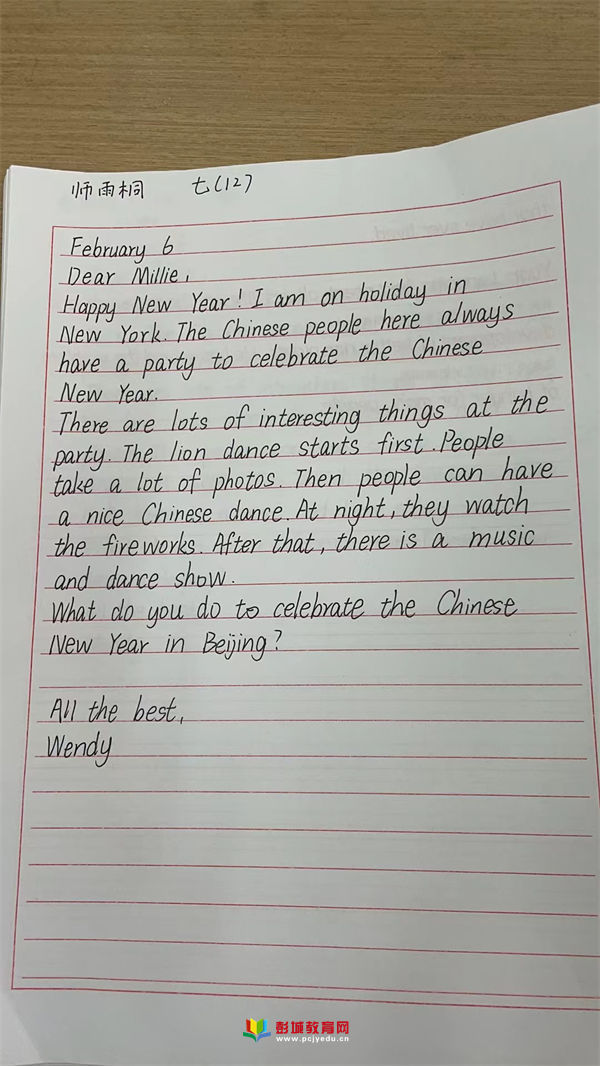 师雨桐 七(12)
February 6
Dear Millie,
Happy New Year! I am on holiday in
New York. The Chinese people here always
have a party to celebrate the Chinese
New Year.
There are lots of interesting things at the
party. The lion dance starts first. People
take a lot of photos. Then people can have
a nice Chinese dance. At night, they watch
the fireworks. After that, there is a music
and dance show.
What do you do to celebrate the Chinese
New Year in Beijing?
All the best,
Wendy
彭城教育网
www.pcjyedu.cn